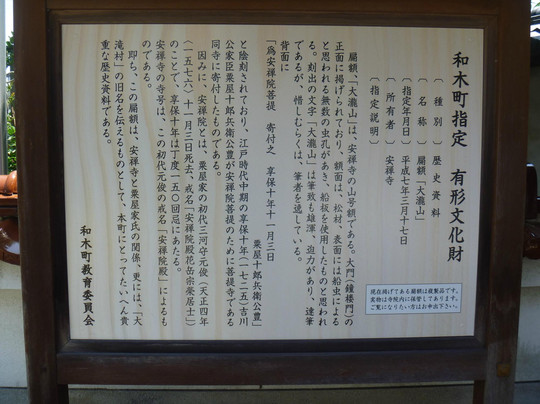 和木町指定　有形文化財
〔種別〕歴史資料
〔名称〕扁額「大瀧山」
〔指定年月日〕平成七年三月十七日
〔所有者〕安禅寺
〔指定説明〕
現在掲げてある扁額は複製品です。
実物は寺院内に保管してあります。
ご覧になりたい方はお申出下さい。
扁額、「大瀧山」は、安禅寺の山号額である。大門(鐘楼門)の
正面に掲げられており、額面は、松材、表面には船虫による
と思われる無数の虫孔があき、船板を使用したものと思われ
る。刻出の文字「大瀧山」は筆致も雄渾、迫力があり、達筆
であるが、惜しむらくは、筆者を逸している。
背面に
「為安禅院菩提　寄付之　享保十年十一月三日
粟屋十郎兵衛公豊」
と陰刻されており、江戸時代中期の享保十年(一七二五)吉川
公家臣粟屋十郎兵衛公豊が安禅院菩提のために菩提寺である
同寺に寄付したものである。
因みに、安禅院とは、粟屋家の初代三河守元俊(天正四年
(一五七六)十一月三日死去、戒名「安禅院殿花岳宗栄居士」)
のことで、享保十年は丁度一五〇回忌にあたる。
安禅寺の寺号は、この初代元俊の戒名「安禅院殿」によるも
のである。
即ち、この扁額は、安禅寺と粟屋家氏の関係、更には、「大
滝村」の旧名を伝えるものとして、本町にとってたいへん貴
重な歴史資料である。
和木町教育委員会